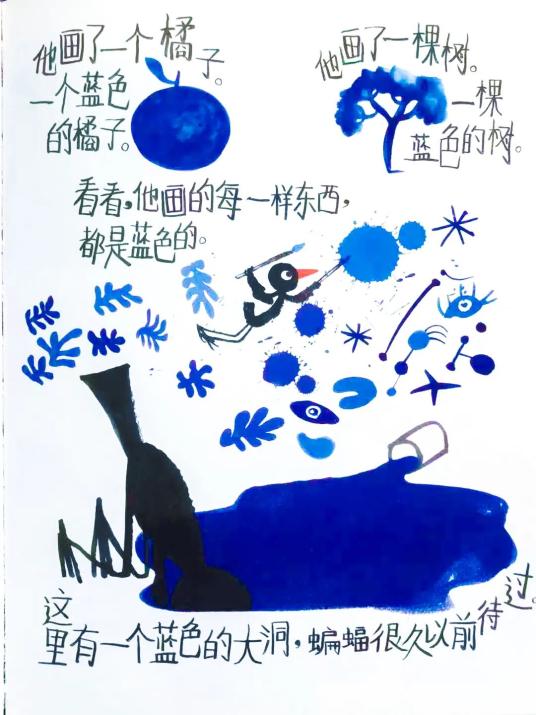 他画了一个橘子。
一个蓝色
的橘子。
他画了一棵树。
一棵
蓝色的树。
看看,他画的每一样东西,
都是蓝色的。
这
里有一个蓝色的大洞,蝙蝠很久以前待过。